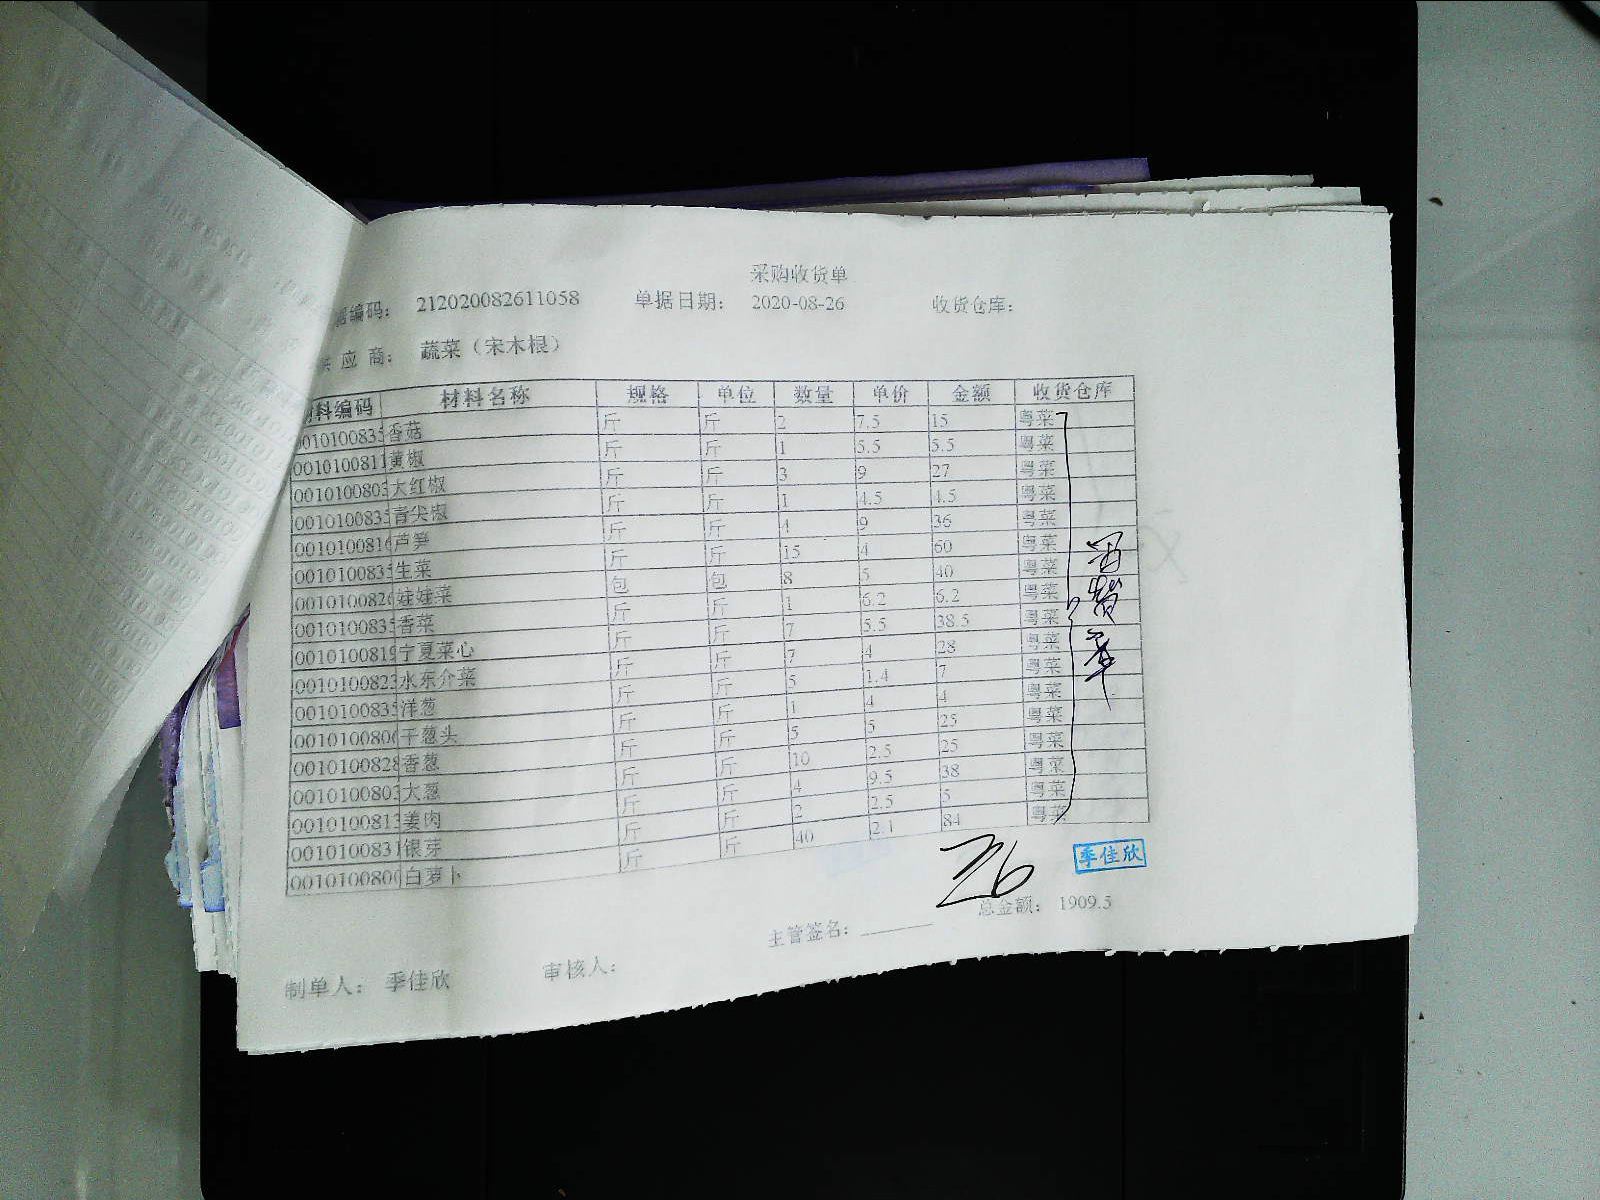 采购收货单
据编码： 212020082611058 单据日期： 2020-08-26 收货仓库：
供 应 商： 蔬菜（宋木根）
材料编码 材料名称 规格 单位 数量 单价 金额 收货仓库
0010100835 香菇 斤 斤 2 7.5 15 粤菜
0010100811 黄椒 斤 斤 1 5.5 5.5 粤菜
0010100803 大红椒 斤 斤 3 9 27 粤菜
0010100835 青尖椒 斤 斤 1 4.5 4.5 粤菜
0010100816 芦笋 斤 斤 4 9 36 粤菜
0010100835 生菜 斤 斤 15 4 60 粤菜
0010100826 娃娃菜 包 包 8 5 40 粤菜
0010100835 香菜 斤 斤 1 6.2 6.2 粤菜
0010100819 宁夏菜心 斤 斤 7 5.5 38.5 粤菜
0010100823 水东介菜 斤 斤 7 4 28 粤菜
0010100835 洋葱 斤 斤 5 1.4 7 粤菜
0010100806 干葱头 斤 斤 1 4 4 粤菜
0010100828 香葱 斤 斤 5 5 25 粤菜
0010100803 大葱 斤 斤 10 2.5 25 粤菜
0010100813 姜肉 斤 斤 4 9.5 38 粤菜
0010100831 银芽 斤 斤 2 2.5 5 粤菜
0010100800 白萝卜 斤 斤 40 2.1 84 粤菜
季佳欣
总金额： 1909.5
主管签名：
制单人： 季佳欣 审核人：